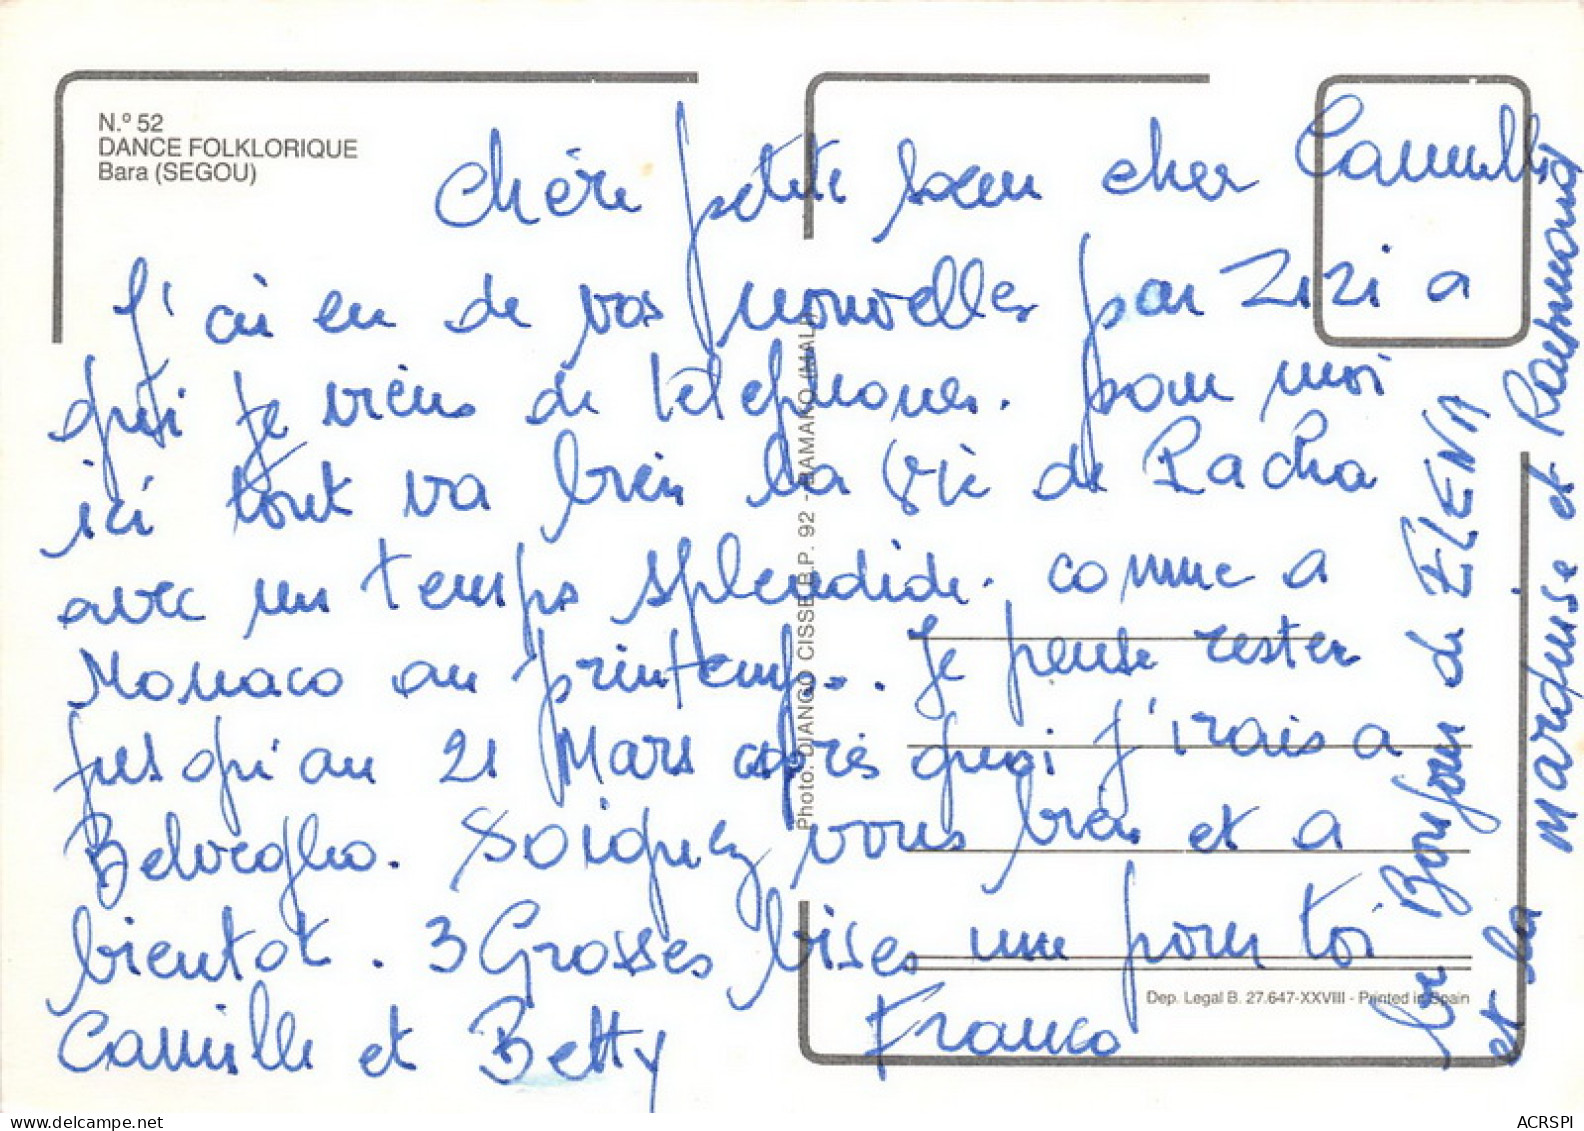 N.º 52
DANCE FOLKLORIQUE
Bara (SEGOU)
Chère petite soeur cher Camille
J'ai eu de vos nouvelles par Zizi a
qui je viens de telephoner. pour moi
ici tout va bien la vie de Pacha
avec un temps splendide. comme a
Monaco au printemps. Je pense rester
jusqu'au 21 Mars après quoi j'irais a
Soignez vous bien et a
bientot. 3 Grosses bises une pour toi
Camille et Betty Franco
Bonjour de ELENA
et la et Raymond
Photo: DJANGO CISSE B.P. 92 - BAMAKO (MALI)
Dep. Legal B. 27.647-XXVIII - Printed in Spain
delcampe.net
ACRSPI